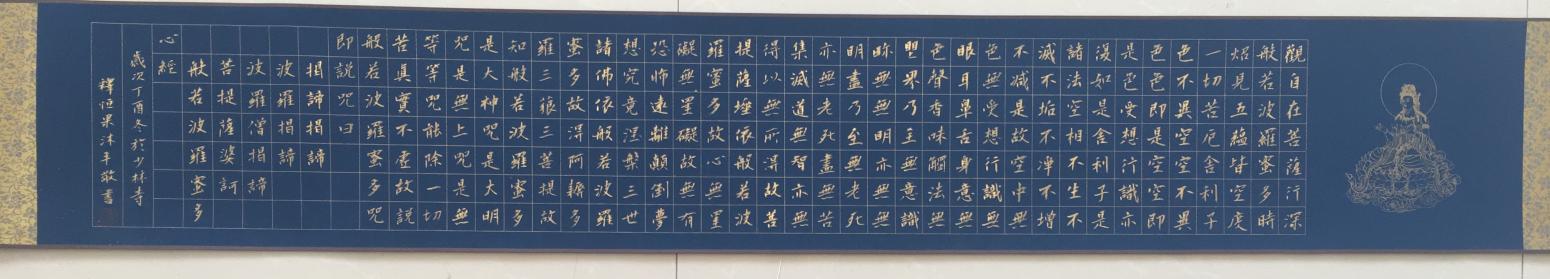 觀自在菩薩行深
般若波羅蜜多時
炤見五蘊皆空度
一切苦厄舍利子
色不異空空不異
色色即是空空即
是色受想行識亦
復如是舍利子是
諸法空相不生不
滅不垢不淨不增
不減是故空中無
色無受想行識無
眼耳鼻舌身意無
色聲香味觸法無
眼界乃至無意識
畍無無明亦無無
明盡乃至無老死
亦無老死盡無苦
集滅道無智亦無
得以無所得故菩
提薩埵依般若波
羅蜜多故心無罣
礙無罣礙故無有
恐怖遠離顛倒夢
想究竟涅槃三世
諸佛依般若波羅
蜜多故得阿耨多
羅三藐三菩提故
知般若波羅蜜多
是大神咒是大明
咒是無上咒是無
等等咒能除一切
苦真實不虛故說
般若波羅蜜多咒
即說咒曰
揭諦揭諦
波羅揭諦
波羅僧揭諦
菩提薩婆訶
般若波羅蜜多
心經
歲次丁酉冬於少林寺
釋恒果沐手敬書